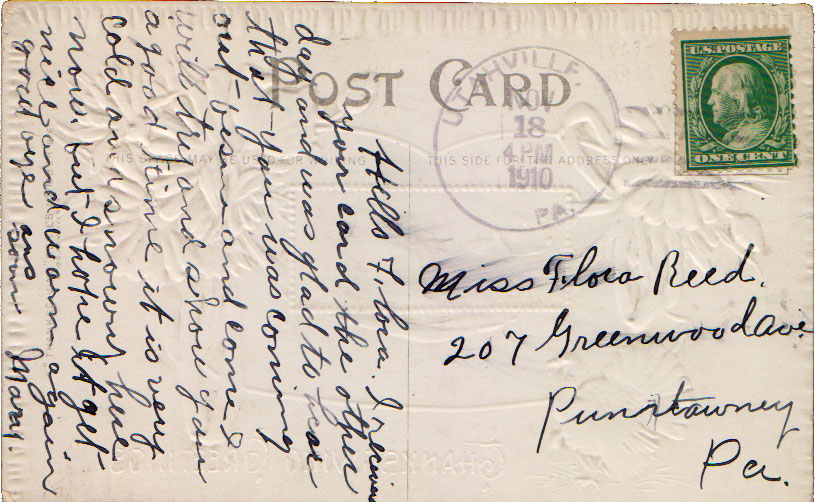 POST CARD
THIS SPACE MAY BE USED FOR WRITING
THIS SIDE FOR THE ADDRESS ONLY
U.S. POSTAGE
ONE CENT
UTAHVILLE.
NOV
18
4 PM
1910
PA.
Hello Flora. I received
your card the other
day and was glad to hear
that you was coming
out. be sure and come I
will try and show you
a good time it is very
cold and snowy here
now. but I hope it get
nice and warm again
good bye ans
soon Mary.
Miss Flora Reed.
207 Greenwood Ave
Punxtawney
Pa.
THANKSGIVING GREETINGS